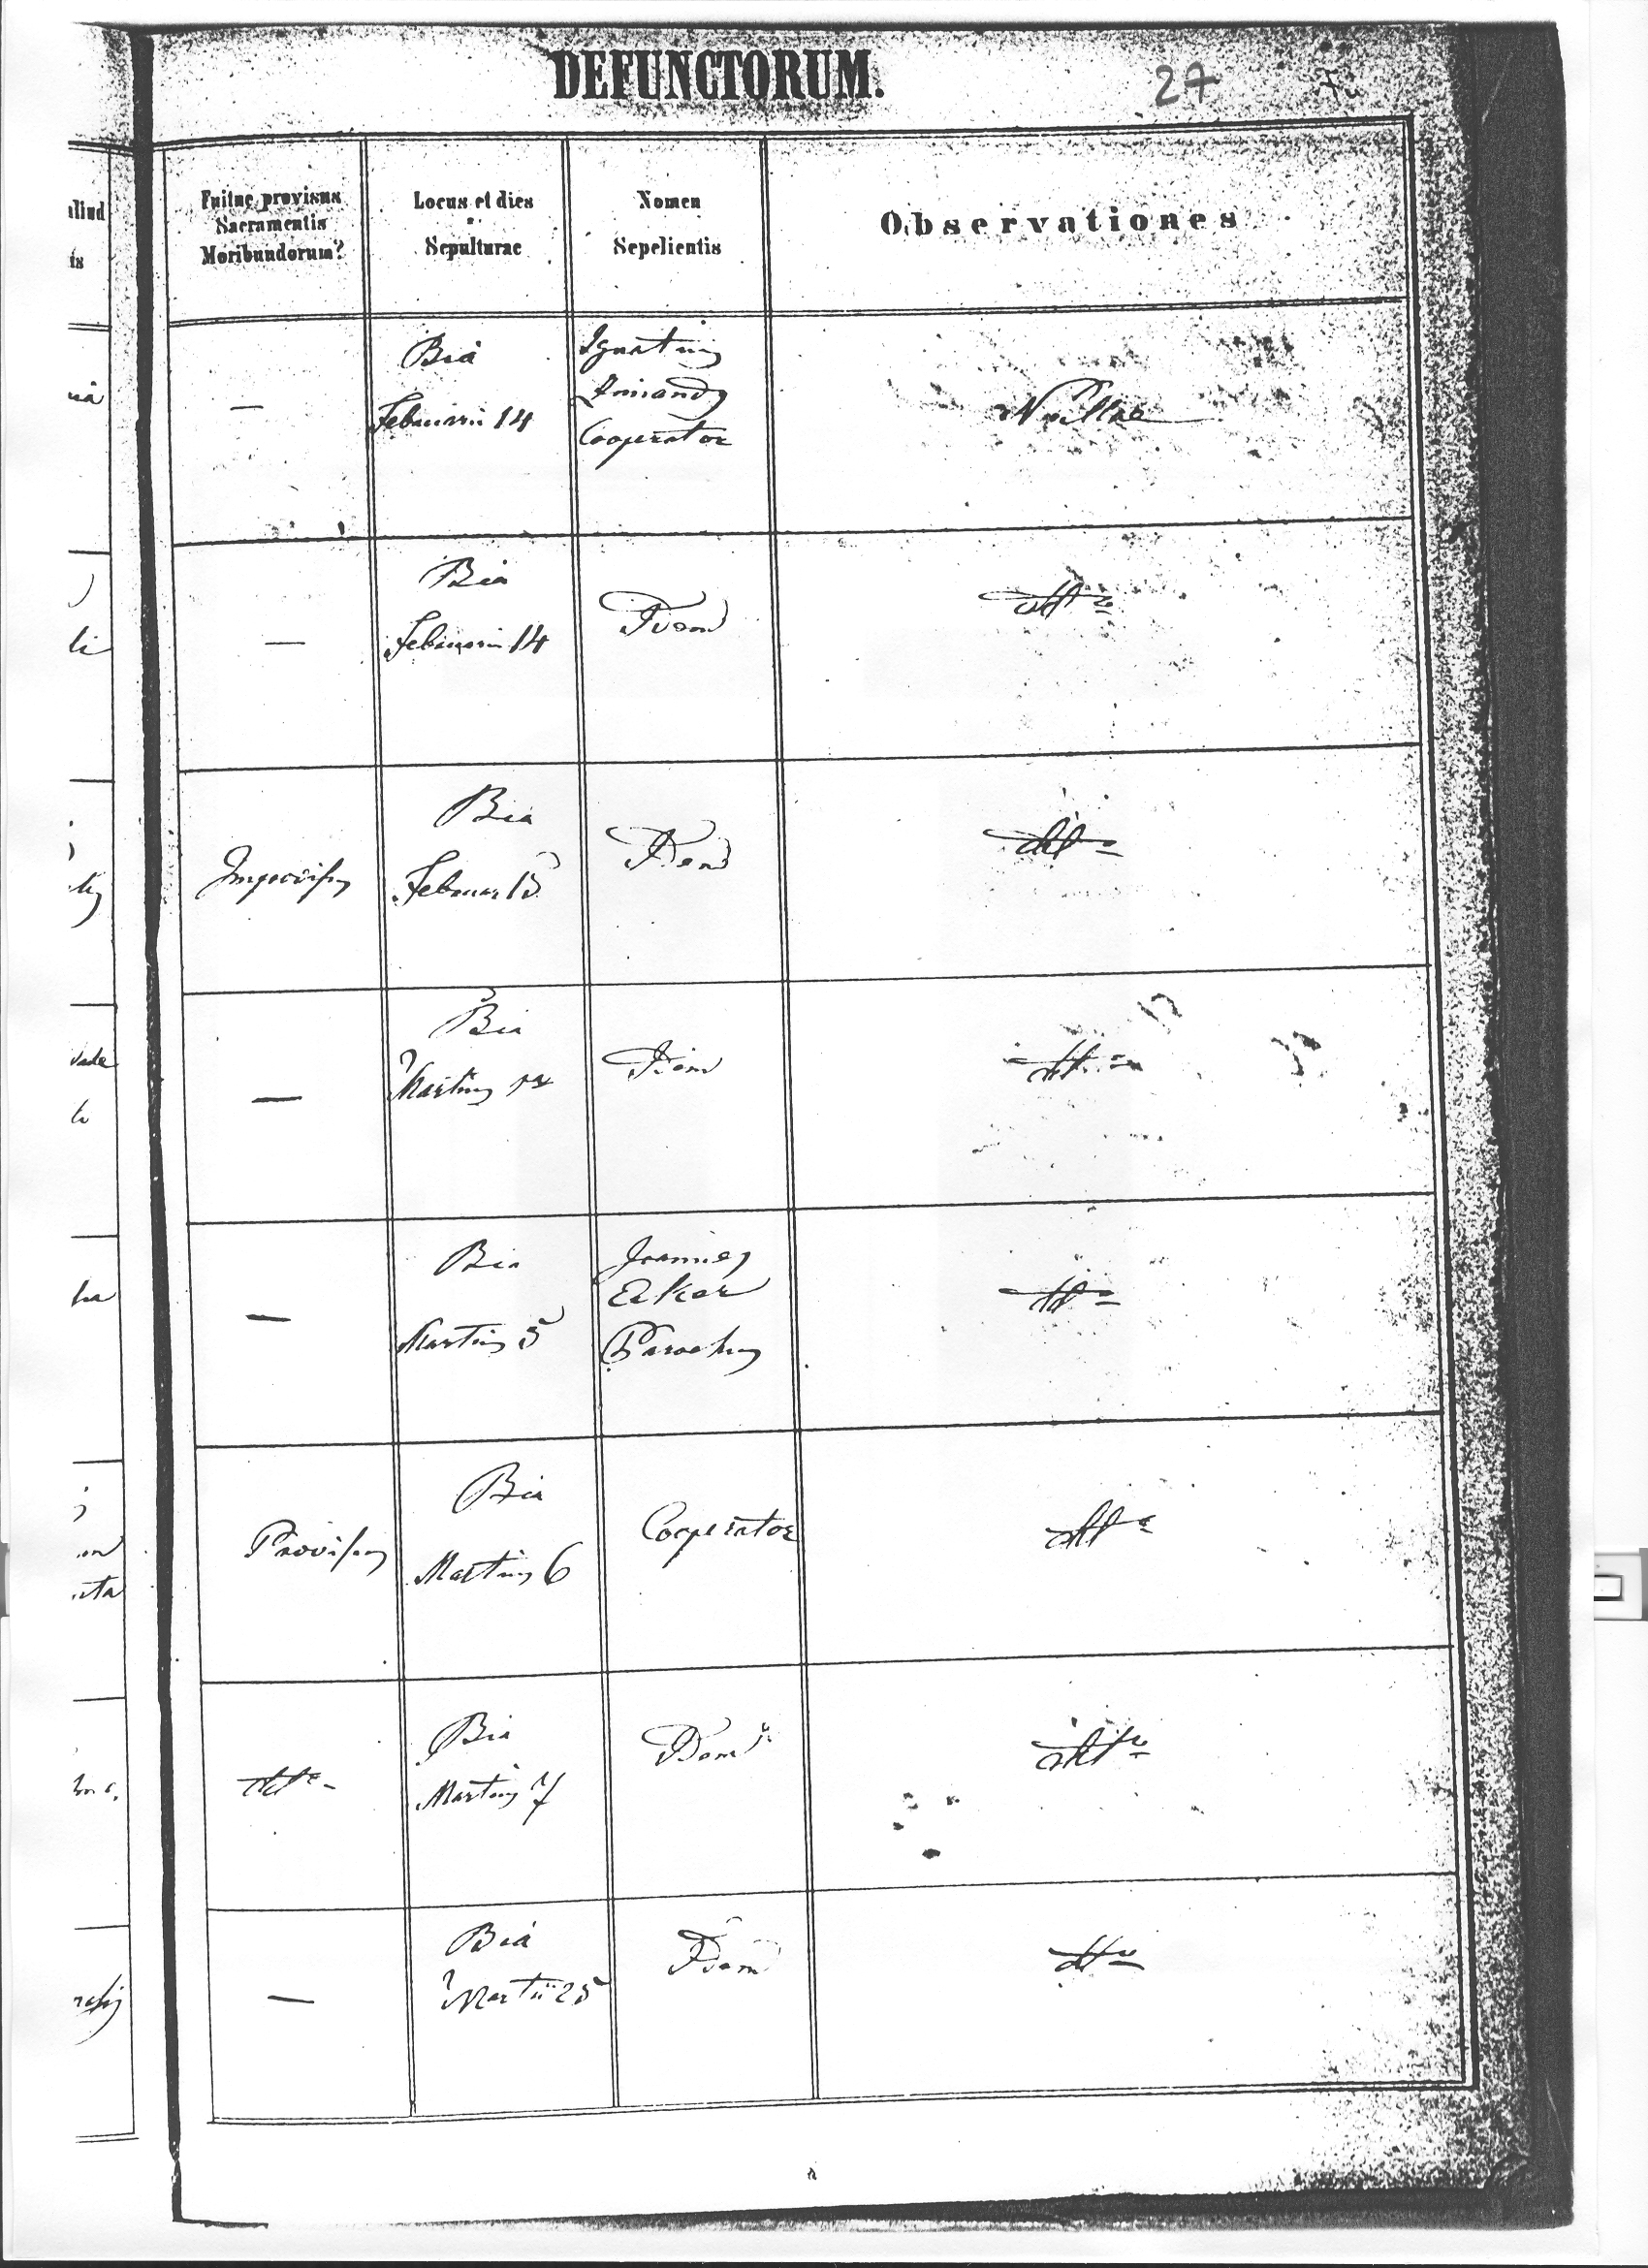 DEFUNCTORUM.
27
aliud
Fuitne provisus
Sacramentis
Moribundorum?
Locus et dies
Sepulturae
Nomen
Sepelientis
Observationes
—
Bia
Februarii 14
Ignatius
Cooperator
Nullae
—
Bia
Februarii 14
Idem
dtto
Improvisus
Bia
Februar 15
Idem
dtto
—
Bia
Martius
Idem
dtto
—
Bia
Martius 5
Joannes
Ecker
Parochus
dtto
Provisus
Bia
Martius 6
Cooperator
dtto
dtto
Bia
Martius 7
Idem
dtto
—
Biá
Martii 25
Idem
dtto